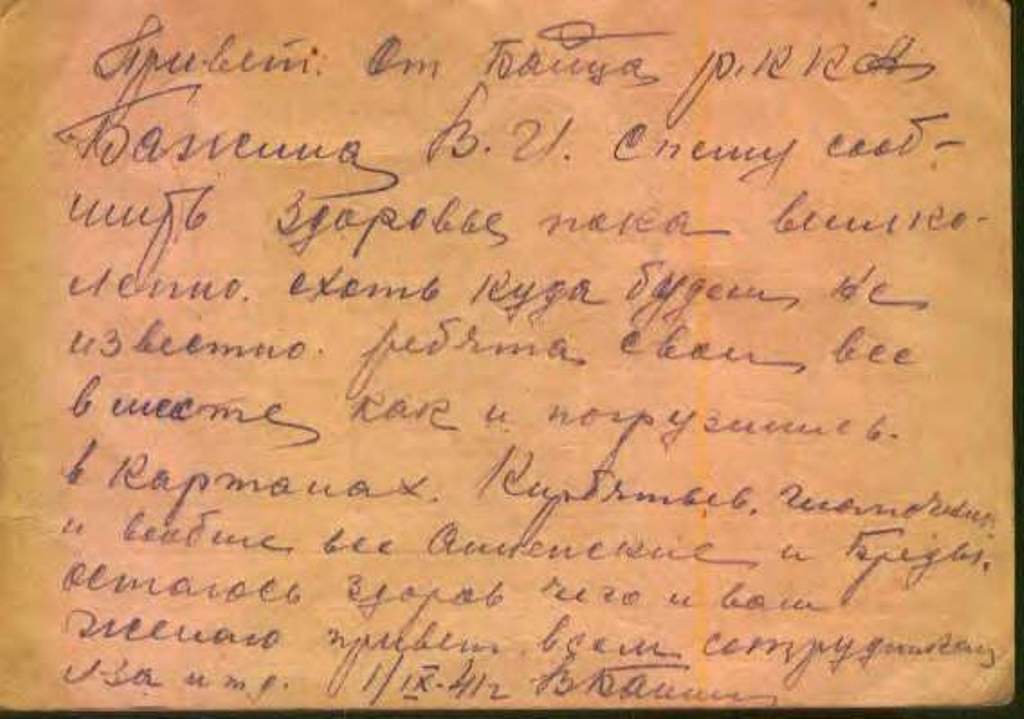 Привет. От Бойца Р.К.К.А
Бажина В. И. Спешу сооб-
щить здоровье пока велико-
лепно. ехать куда будем не
известно. ребята свои все
в месте как и погрузились
в Карталах.
и вообще все и Бреды.
остаюсь здоров чего и вам
желаю привет всем сотрудникам
и т.д. 1/IX-41г